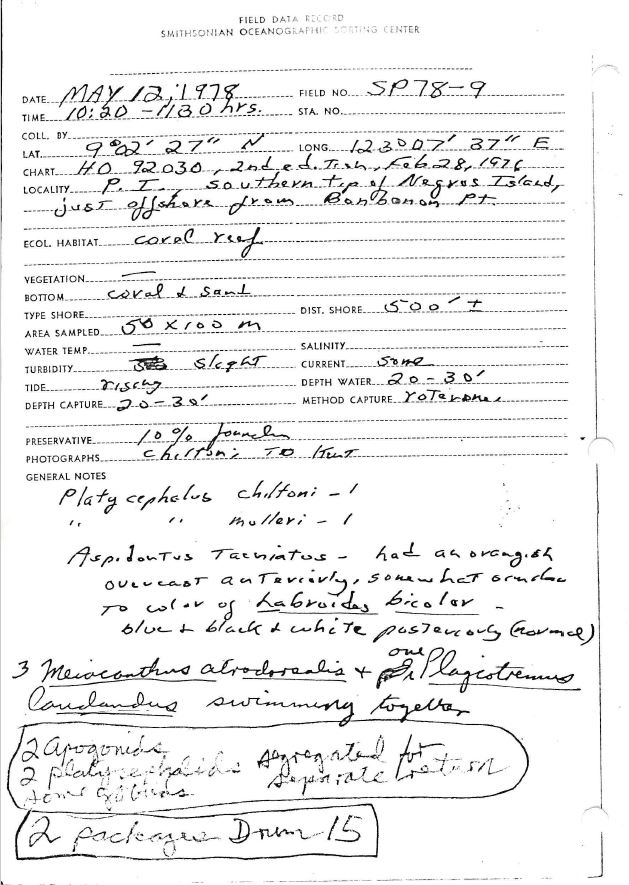 FIELD DATA RECORD
SMITHSONIAN OCEANOGRAPHIC SORTING CENTER
DATE MAY 12, 1978 FIELD NO. SP78-9
TIME 10:20 - 1130 hrs. STA. NO.
COLL. BY
LAT. 9°02' 27" N LONG. 123°07' 37" E
CHART HO 92030, 2nd ed. Feb 28, 1976
LOCALITY P. I., southern tip of Negros Island,
just offshore from Bonbonon Pt
ECOL. HABITAT coral reef
VEGETATION —
BOTTOM coral & sand
TYPE SHORE DIST. SHORE 500' ±
AREA SAMPLED 50 x 100 m
WATER TEMP. — SALINITY
TURBIDITY slight CURRENT some
TIDE rising DEPTH WATER 20-30'
DEPTH CAPTURE 20-30' METHOD CAPTURE rotenone
PRESERVATIVE 10% formalin
PHOTOGRAPHS chiltoni TO Kurt
GENERAL NOTES
Platycephalus chiltoni - 1
" " mulleri - 1
Aspidontus Taeniatus - had an orangish
overcast anteriorly, somewhat similar
TO color of Labroides bicolor -
blue & black & white posteriorly (normal)
3 Meiacanthus atrodorsalis & one Plagiotremus
laudandus swimming together
2 Apogonids
2 platycephalids segregated for
some gobiids separate return
2 packages Drum 15